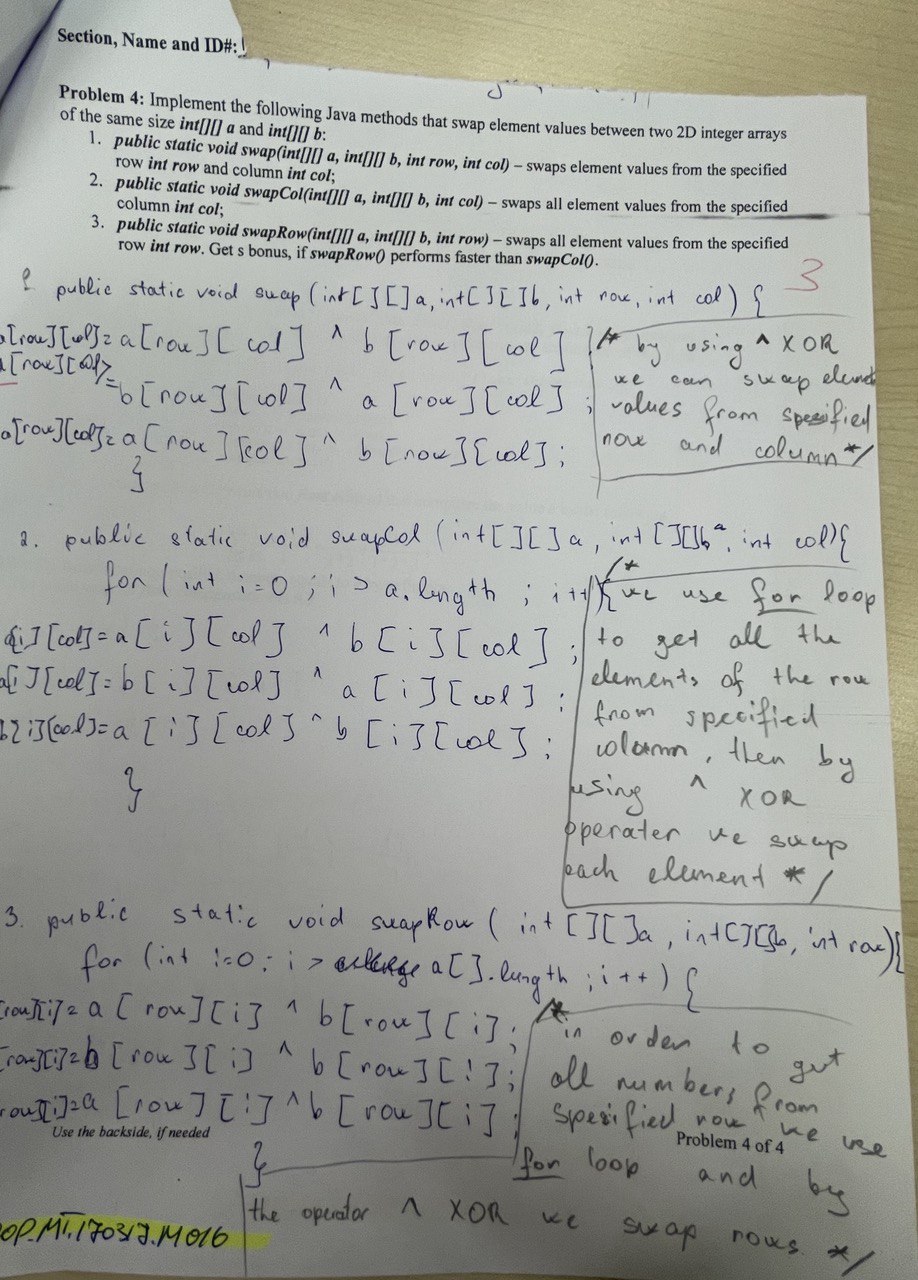 Section, Name and ID#:
Problem 4: Implement the following Java methods that swap element values between two 2D integer arrays
of the same size int[][] a and int[][] b:
1. public static void swap(int[][] a, int[][] b, int row, int col) – swaps element values from the specified
row int row and column int col;
2. public static void swapCol(int[][] a, int[][] b, int col) – swaps all element values from the specified
column int col;
3. public static void swapRow(int[][] a, int[][] b, int row) – swaps all element values from the specified
row int row. Get s bonus, if swapRow() performs faster than swapCol().
3
public static void swap (int[][]a, int[][]b, int row, int col) {
[row][col]= a[row][col] ^ b[row][col]
[row][col]
=b[row][col] ^ a[row][col];
a[row][col]= a[row][col] ^ b[row][col];
}
/* by using ^ XOR
we can swap element
values from specified
row and column */
2. public static void swapCol (int[][]a, int[][]b, int col){
for (int i=0; i > a.length; i++){
[i][col]= a[i][col] ^ b[i][col];
a[i][col]= b[i][col] ^ a[i][col];
b[i][col]= a[i][col] ^ b[i][col];
}
/*
we use for loop
to get all the
elements of the row
from specified
column, then by
using ^ XOR
operater we swap
each element */
3. public static void swapRow (int[][]a, int[][]b, int row){
for (int i=0; i > a[].length; i++) {
[row][i]= a[row][i] ^ b[row][i];
[row][i]=b[row][i] ^ b[row][i];
row[i]=a[row][i] ^ b[row][i];
}
/*
in order to get
all numbers from
spesified row we use
for loop and by
the operator ^ XOR we swap rows */
Use the backside, if needed
Problem 4 of 4
OP_MT.170317.M016